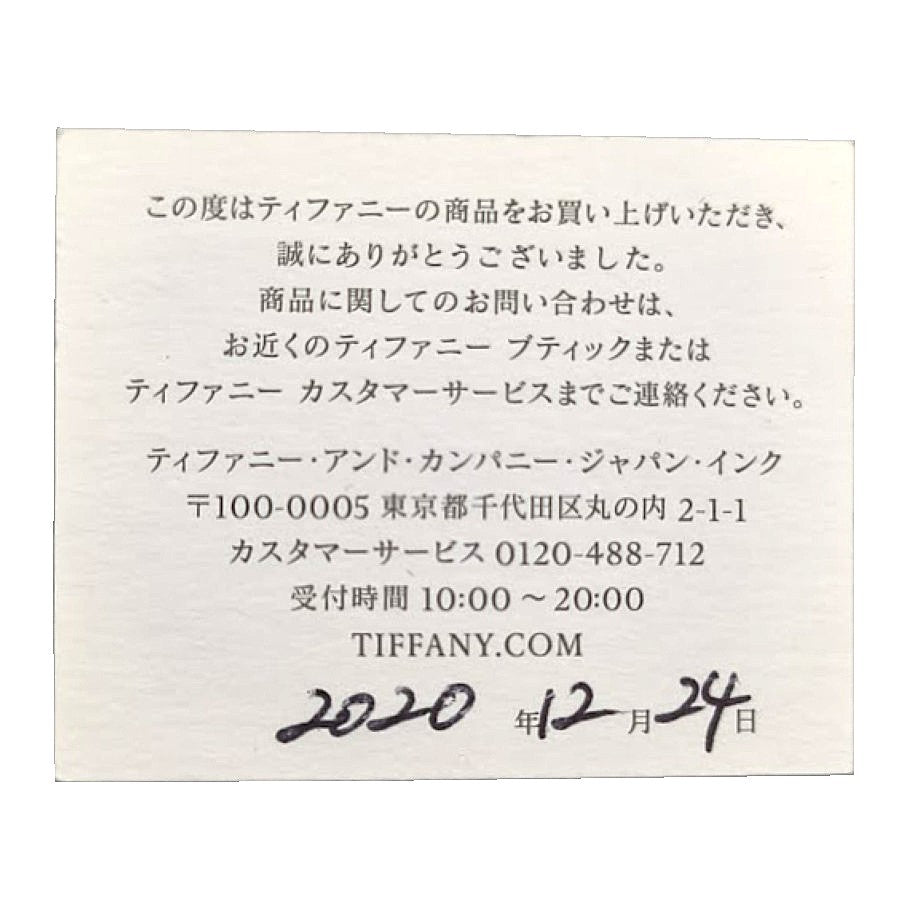 この度はティファニーの商品をお買い上げいただき、
誠にありがとうございました。
商品に関してのお問い合わせは、
お近くのティファニー ブティックまたは
ティファニー カスタマーサービスまでご連絡ください。
ティファニー・アンド・カンパニー・ジャパン・インク
〒100-0005 東京都千代田区丸の内 2-1-1
カスタマーサービス 0120-488-712
受付時間 10:00 ～ 20:00
TIFFANY.COM
2020 年12月24日